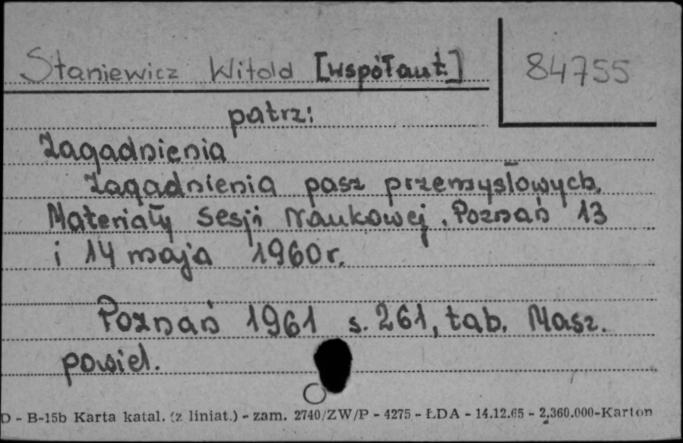 Staniewicz Witold [współaut.] 84755
patrz:
Zagadnienia
Zagadnienia pasz przemysłowych.
Materiały Sesji Naukowej. Poznań 13
i 14 maja 1960r.
Poznań 1961 s. 261, tab. Masz.
powiel.
D - B-15b Karta katal. (z liniat.) - zam. 2740/ZW/P - 4275 - ŁDA - 14.12.65 - 2,360.000-Karton